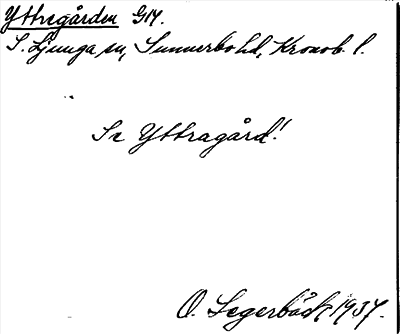 Yttregården GM.
S. Ljunga sn, Sunnerbo hd, Kronob. l.
Se Yttragård!
O. Segerbäck 1937.